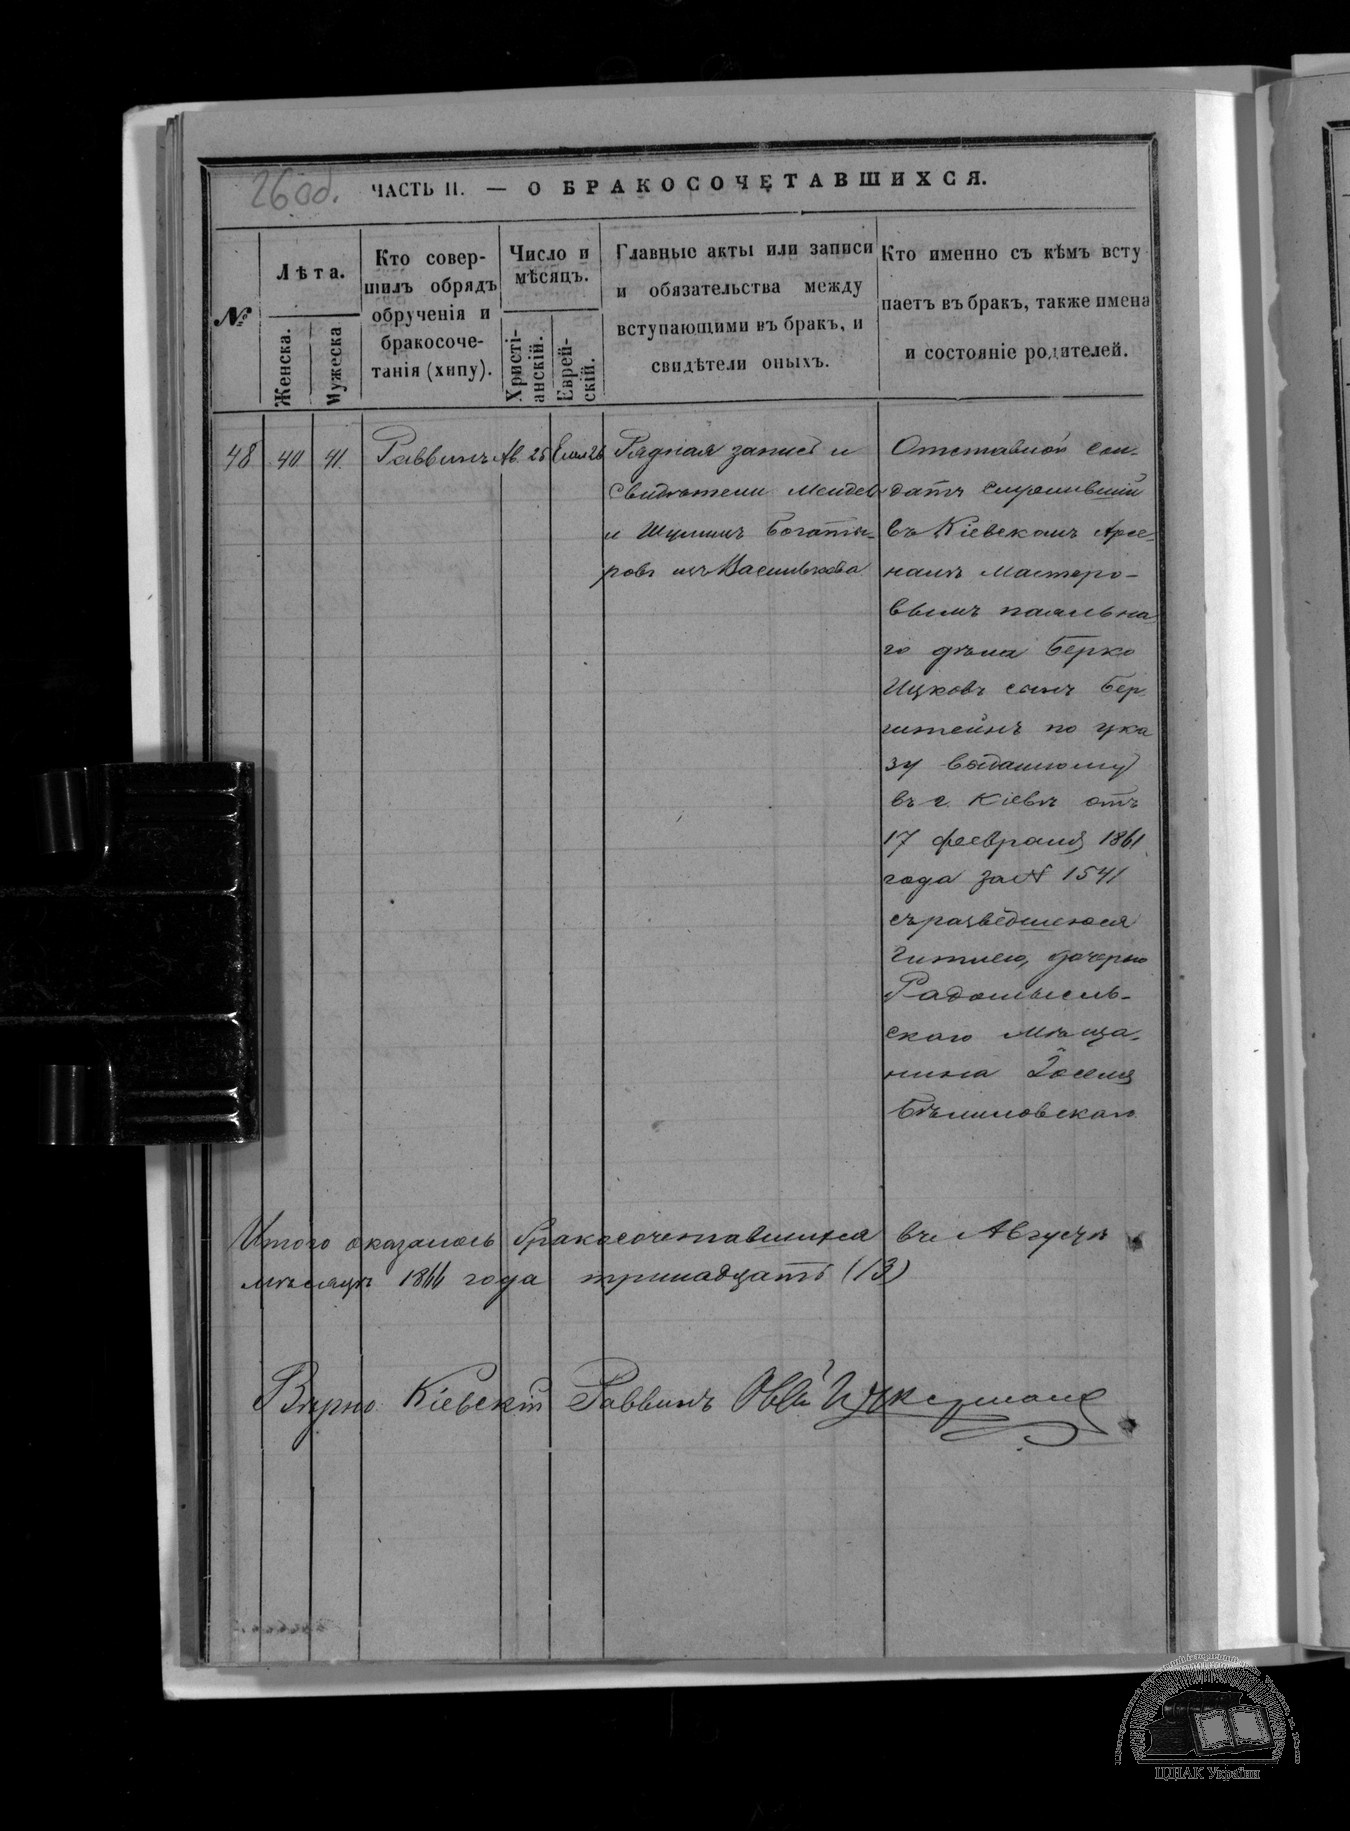 26об.
ЧАСТЬ II. — О БРАКОСОЧЕТАВШИХСЯ.
№
Лѣта.
Женска.
Мужеска
Кто совер-
шилъ обрядъ
обрученія и
бракосоче-
танія (хипу).
Число и
мѣсяцъ.
Христі-
анскій.
Еврей-
скій.
Главные акты или записи
и обязательства между
вступающими въ бракъ, и
свидѣтели оныхъ.
Кто именно съ кѣмъ всту
паетъ въ бракъ, также имена
и состояніе родителей.
48
40
41.
Раввинъ
Ав. 25
Елул 26
Рядная запись и
Свидѣтели Мендель
и Шулимъ Богаты-
ровъ изъ Василькова
Отставной сол-
датъ служившій
въ Кіевскомъ Арсе-
налѣ Мастеро-
вымъ паяльна
го дѣла Берко
Ицковъ сынъ Бер-
штейнъ по ука
зу выданному
въ г. Кіевѣ отъ
17 февраля 1861
года за № 1541
съ разведшеюся
Гитлею, дочерью
Радомысль-
скаго Мѣща-
нина Іоселя
Бѣлиловскаго
Итого оказалось бракосочетавшихся въ Августѣ
мѣсяцѣ 1866 года тринадцать (13)
Вѣрно Кіевскій Раввинъ Цукерманъ
ЦДІАК України